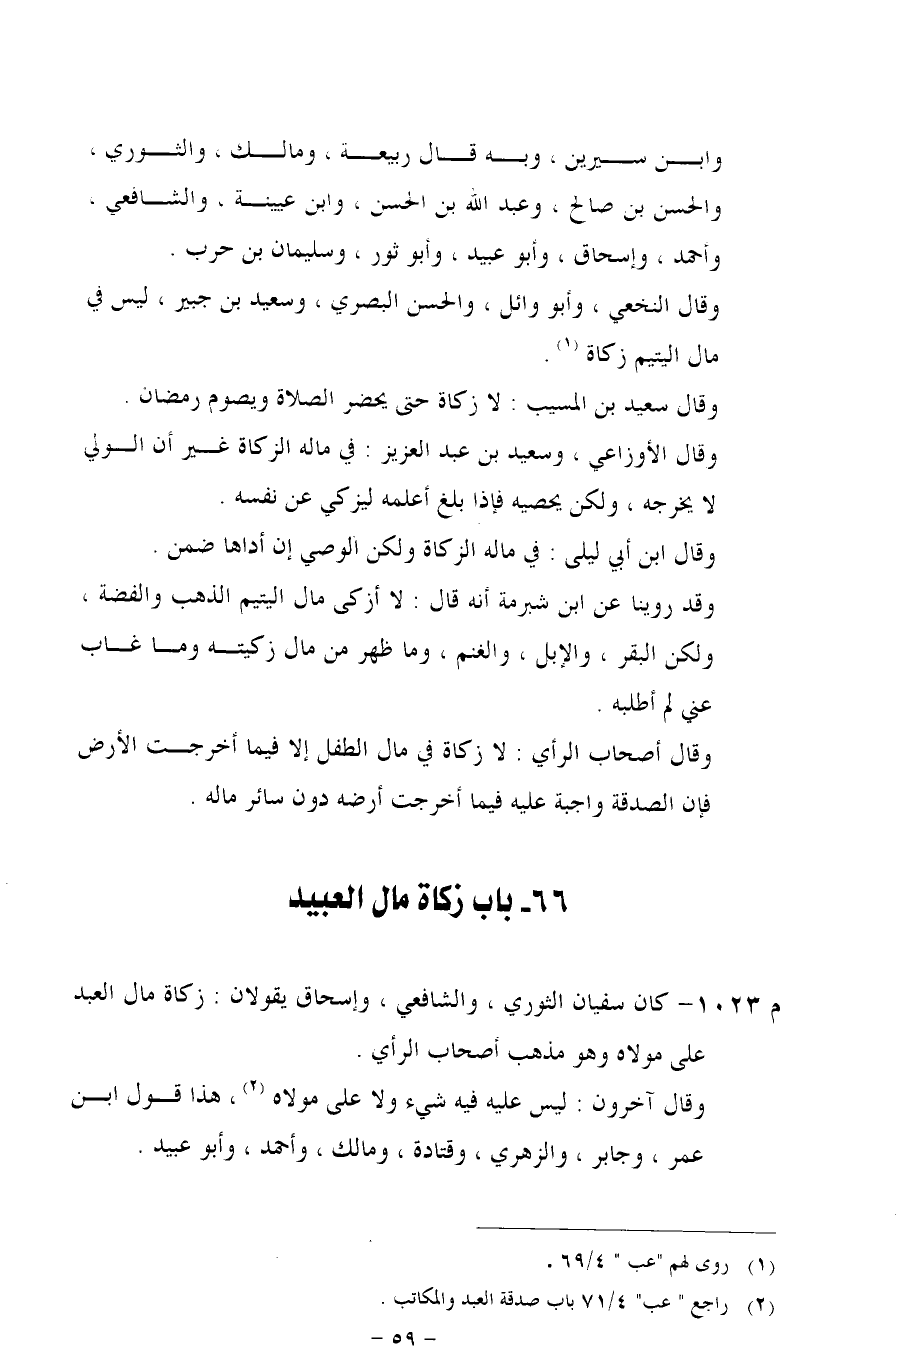 وابن سيرين ، وبه قال ربيعة ، ومالك ، والثوري ،
والحسن بن صالح ، وعبد الله بن الحسن ، وابن عيينة ، والشافعي ،
وأحمد ، وإسحاق ، وأبو عبيد ، وأبو ثور ، وسليمان بن حرب .
وقال النخعي ، وأبو وائل ، والحسن البصري ، وسعيد بن جبير ، ليس في
مال اليتيم زكاة (١) .
وقال سعيد بن المسيب : لا زكاة حتى يحضر الصلاة ويصوم رمضان .
وقال الأوزاعي ، وسعيد بن عبد العزيز : في ماله الزكاة غير أن الولي
لا يخرجه ، ولكن يحصيه فإذا بلغ أعلمه ليزكي عن نفسه .
وقال ابن أبي ليلى : في ماله الزكاة ولكن الوصي إن أداها ضمن .
وقد روينا عن ابن شبرمة أنه قال : لا أزكى مال اليتيم الذهب والفضة ،
ولكن البقر ، والإبل ، والغنم ، وما ظهر من مال زكيته وما غاب
عني لم أطلبه .
وقال أصحاب الرأي : لا زكاة في مال الطفل إلا فيما أخرجت الأرض
فإن الصدقة واجبة عليه فيما أخرجت أرضه دون سائر ماله .
٦٦ـ باب زكاة مال العبيد
م ١٠٢٣– كان سفيان الثوري ، والشافعي ، وإسحاق يقولان : زكاة مال العبد
على مولاه وهو مذهب أصحاب الرأي .
وقال آخرون : ليس عليه فيه شيء ولا على مولاه (٢) ، هذا قول ابن
عمر ، وجابر ، والزهري ، وقتادة ، ومالك ، وأحمد ، وأبو عبيد .
(١) روى لهم "عب " ٦٩/٤ .
(٢) راجع " عب" ٧١/٤ باب صدقة العبد والمكاتب .
– ٥٩ –